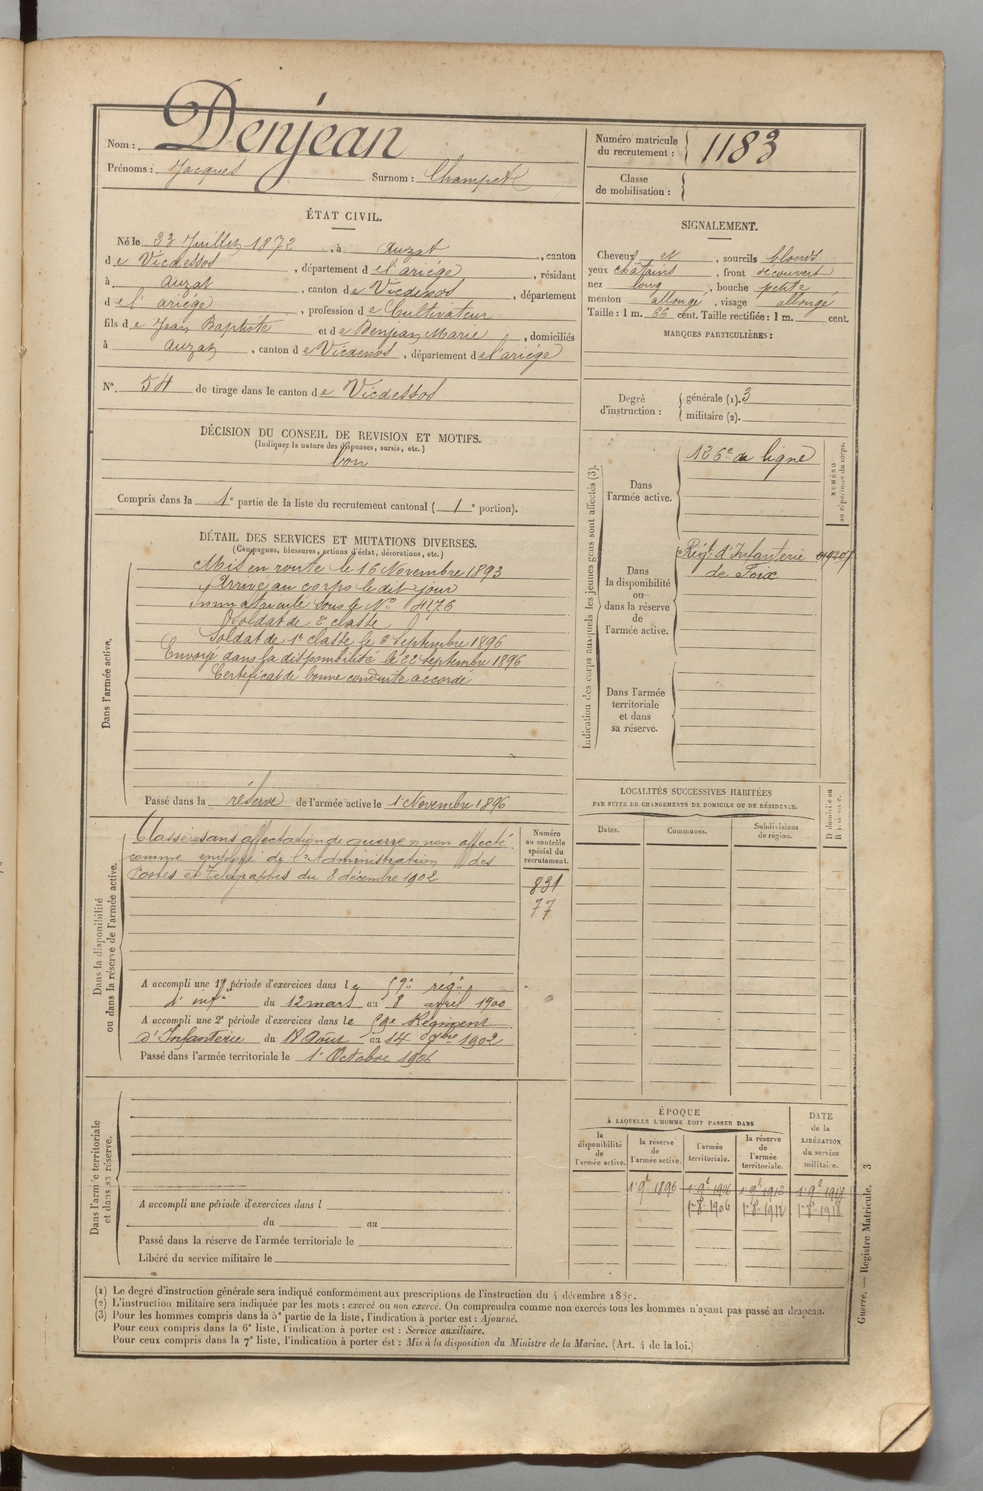 Nom : Denjean
Prénoms : Jacques Surnom : Champet
Numéro matricule du recrutement : 1183
Classe de mobilisation :
ÉTAT CIVIL.
Né le 23 Juillet 1872, à Auzat, canton
de Vicdessos, département de l'ariége, résidant
à Auzat, canton de Vicdessos, département
de l'ariége, profession de Cultivateur
fils de Jean Baptiste et de Denjean Marie, domiciliés
à Auzat, canton de Vicdessos, département de l'ariége
N° 54 de tirage dans le canton de Vicdessos
SIGNALEMENT.
Cheveux et, sourcils blonds
yeux chatains, front découvert
nez long, bouche petite
menton allongé, visage allongé
Taille : 1 m. 66 cent. Taille rectifiée : 1 m. cent.
MARQUES PARTICULIÈRES :
Degré d'instruction : générale (1). 3
militaire (2).
DÉCISION DU CONSEIL DE REVISION ET MOTIFS.
(Indiquer la nature des dispenses, sursis, etc.)
bon
Compris dans la 1e partie de la liste du recrutement cantonal ( 1e portion).
DÉTAIL DES SERVICES ET MUTATIONS DIVERSES.
(Campagnes, blessures, actions d'éclat, décorations, etc.)
Dans l'armée active.
Mis en route le 16 Novembre 1893
Arrivé au corps le dit jour
Immatriculé sous le N° 4176
Soldat de 2e classe
Soldat de 1e classe le 3 Septembre 1896
Envoyé dans la disponibilité le 22 septembre 1896
Certificat de bonne conduite accordé
Passé dans la réserve de l'armée active le 1 Novembre 1896
Indication des corps auxquels les jeunes gens sont affectés (3).
NUMÉRO au répertoire du corps.
Dans l'armée active. 126e de ligne
Dans la disponibilité ou dans la réserve de l'armée active.
Régt d'Infanterie
de Foix
Dans l'armée territoriale et dans sa réserve.
LOCALITÉS SUCCESSIVES HABITÉES
PAR SUITE DE CHANGEMENTS DE DOMICILE OU DE RÉSIDENCE.
Dates. Communes. Subdivisions de région. D domicile ou R résidence.
Dans la disponibilité ou dans la réserve de l'armée active.
Numéro au contrôle spécial du recrutement.
831
77
Classé sans affectation de guerre non affecté
comme employé de l'Administration des
Postes et Télégraphes du 8 décembre 1902
A accompli une 1re période d'exercices dans le 59e rég
d'infie du 12 mars au 8 avril 1900
A accompli une 2e période d'exercices dans le 59e Régiment
d'Infanterie du 18 Août au 14 7bre 1902
Passé dans l'armée territoriale le 1e Octobre 1906
Dans l'armée territoriale et dans sa réserve.
A accompli une période d'exercices dans l
du au
Passé dans la réserve de l'armée territoriale le
Libéré du service militaire le
ÉPOQUE
À LAQUELLE L'HOMME DOIT PASSER DANS
la disponibilité de l'armée active. la réserve de l'armée active. l'armée territoriale. la réserve de l'armée territoriale. DATE de la LIBÉRATION du service militaire.
1 9b 1896 1 9b 1906 1 9b 1912 1 9b 1918
1-8-1906 1-8-1912 1-8-1918
(1) Le degré d'instruction générale sera indiqué conformément aux prescriptions de l'instruction du 4 décembre 1889.
(2) L'instruction militaire sera indiquée par les mots : exercé ou non exercé. On comprendra comme non exercés tous les hommes n'ayant pas passé au drapeau.
(3) Pour les hommes compris dans la 5e partie de la liste, l'indication à porter est : Ajourné.
Pour ceux compris dans la 6e liste, l'indication à porter est : Service auxiliaire.
Pour ceux compris dans la 7e liste, l'indication à porter est : Mis à la disposition du Ministre de la Marine. (Art. 4 de la loi.)
Guerre. — Registre Matricule. 3